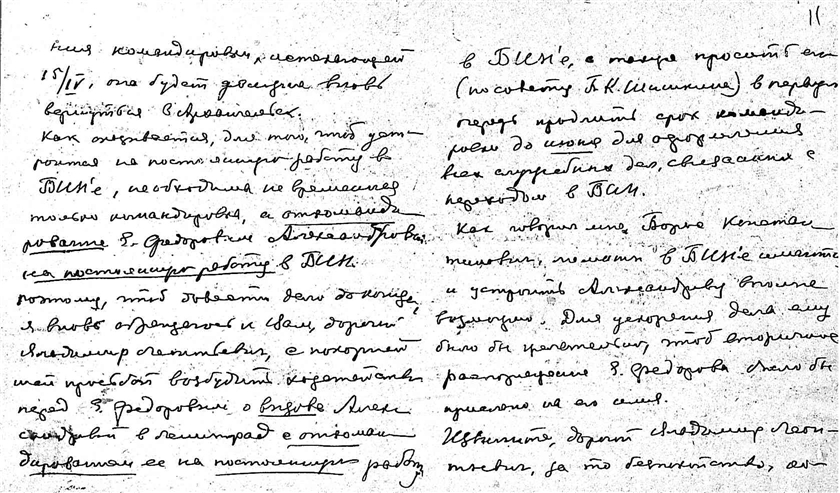 11
ния командировки, истекающей
15/IV, она будет должна вновь
вернуться в Архангельск.
Как оказывается, для того, чтоб уст-
роится на постоянную работу в
БИН'е, необходима не временная
только командировка, а откоманди-
рование Е. Федоровым Александровой
на постоянную работу в БИН.
Поэтому, чтоб довести дело до конца,
я вновь обращаюсь к Вам, дорогой
Владимир Леонтьевич, с покорней-
шей просьбой возбудить ходатайство
перед Е. Федоровым о вызове Алекс
сандровой в Ленинград с откоман
дированием ее на постоянную работу
в БИН'е, а также просить его
(по совету Б.К. Шишкина) в первую
очередь продлить срок команди-
ровки до июня для оформления
всех служебных дел, связанных с
переходом в БИН.
Как говорил мне Борис Констан
тинович, комнаты в БИН'е имеются
и устроить Александрову вполне
возможно. Для ускорения дела ему
было бы желательно, чтоб вторичное
распоряжение Е. Федорова было бы
прислано на его имя.
Извините, дорогой Владимир Леон-
тьевич, за то беспокойство, ко-